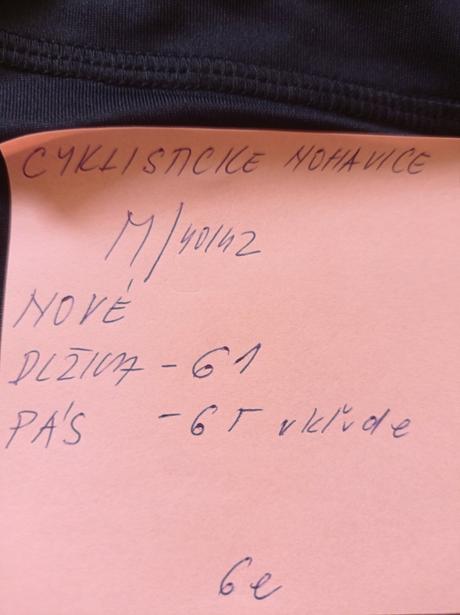 CYKLISTICKE NOHAVICE
M/40/42
NOVÉ
DLŽKA - 61
PÁS - 65 v kľude
6e